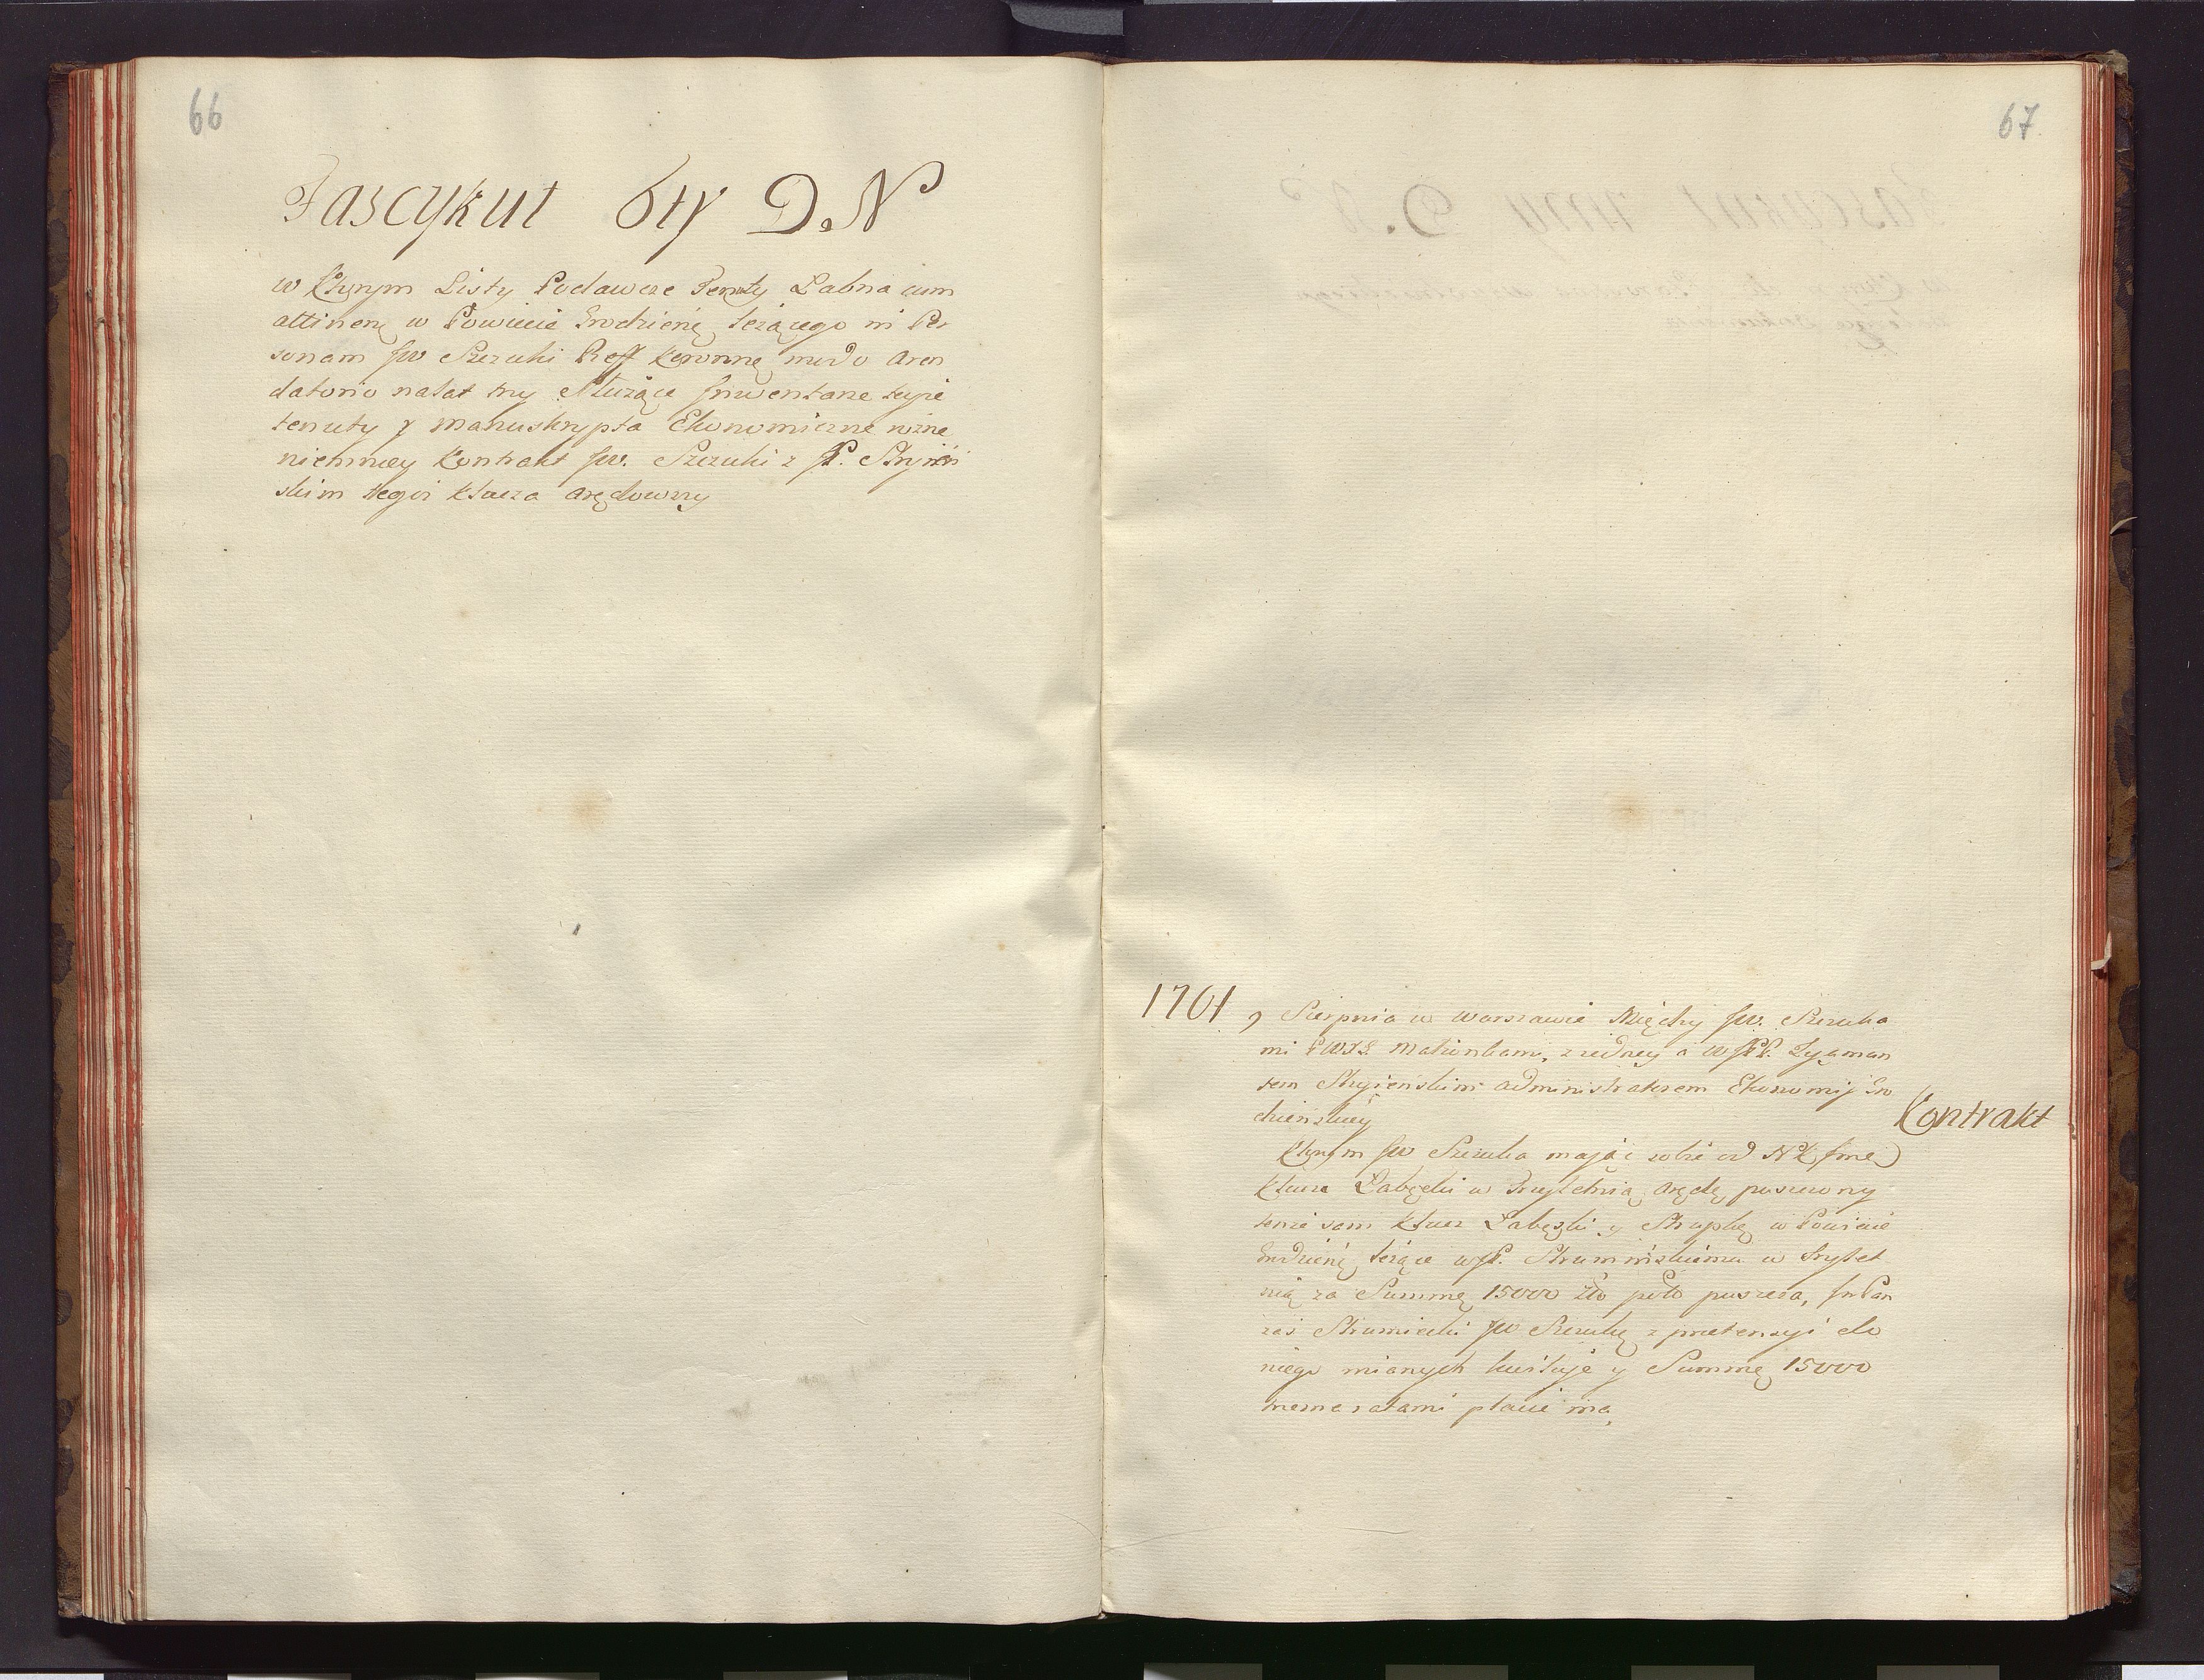 66
Fascykuł 6ty D. N
w Ktȯrym Listy Podawcze Tenuty Łabna cum
attinenꝫ w Powiecie Grodzienꝫ leżącego in Per
sonam JW Szczuki Reff Koronneꝫ modo aren
datorio na lat try służące Jnwentarze teyże
tenuty y manuskrypta Ekonomiczne rożne
niemniey Kontrakt JW. Szczuki z JP. Stryień
skim tegoż klucza arędowny
67
1701 9 Sierpnia w Warszawie Między JW. Szczuka
mi PWXL Małżonkami, z iedney a WJPP. Zygman
tem Stryieńskim administratorem Ekonomij Gro
dzieńskiey
Kontrakt
Ktȯrym JW Szczuka maiąc sobie od
klucz Łabęski w Trzyletnią arędę puszczony
tenże sam klucz Łabęski y Strupkę w Powiecie
Grodzienꝫ leżące WJP. Strumińskiemu w Trzylet
nią za Summę 15000 zło poło puszcza, JmPan
zaś Strumieński JW Szczukę z pretensyi do
niego mianych kwituje y Summę 15000
trzema ratami płacić ma